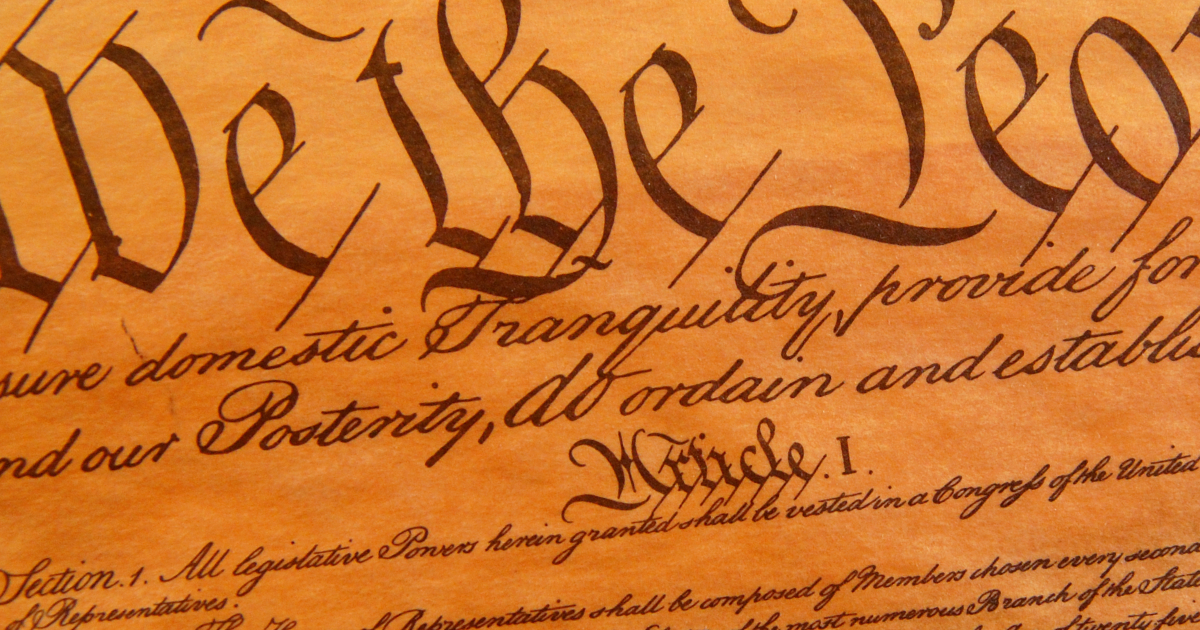 We the Peo
sure domestic Tranquility, provide for
nd our Posterity, do ordain and establis
Article. I.
Section. 1. All legislative Powers herein granted shall be vested in a Congreſs of the United
of Representatives.
of Representatives shall be composed of Members chosen every second
the most numerous Branch of the State
of twenty five